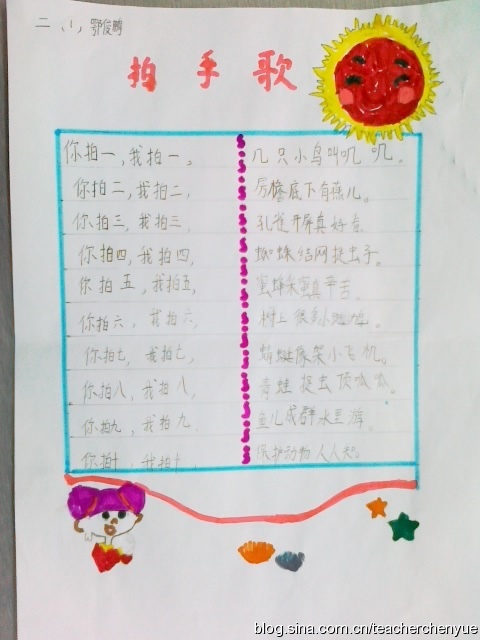 二、1、鄂俊鹏
拍手歌
你拍一,我拍一。 几只小鸟叫叽叽。
你拍二,我拍二, 房檐底下有燕儿。
你拍三,我拍三, 孔雀开屏真好看
你拍四,我拍四, 蜘蛛结网捉虫子。
你拍五,我拍五, 蜜蜂采蜜真辛苦。
你拍六,我拍六, 树上
你拍七,我拍七, 蜻蜓像架小飞机。
你拍八,我拍八, 青蛙捉虫顶呱呱。
你拍九,我拍九 鱼儿成群水里游,
你拍十,我拍十, 保护动物人人知。
blog.sina.com.cn/teacherchenyue